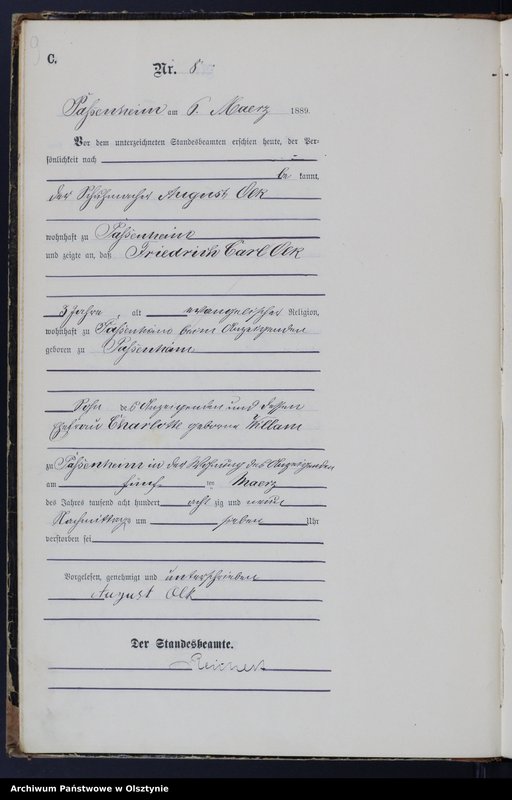 C.
Nr. 8.
Passenheim am 6. Maerz 1889.
Vor dem unterzeichneten Standesbeamten erschien heute, der Per-
sönlichkeit nach
be kannt,
der Schuhmacher August Olk
wohnhaft zu Passenheim
und zeigte an, daß Friedrich Carl Olk
3 Jahre, alt evangelischer Religion,
wohnhaft zu Passenheim beim Anzeigenden
geboren zu Passenheim
Sohn des Anzeigenden und dessen
Ehefrau Charlotte geborene Willam
zu Passenheim in der Wohnung des Anzeigenden
am fünf ten Maerz
des Jahres tausend acht hundert acht zig und neun
Nachmittags um sieben Uhr
verstorben sei
Vorgelesen, genehmigt und unterschrieben
August Olk
Der Standesbeamte.
Reichert
Archiwum Państwowe w Olsztynie